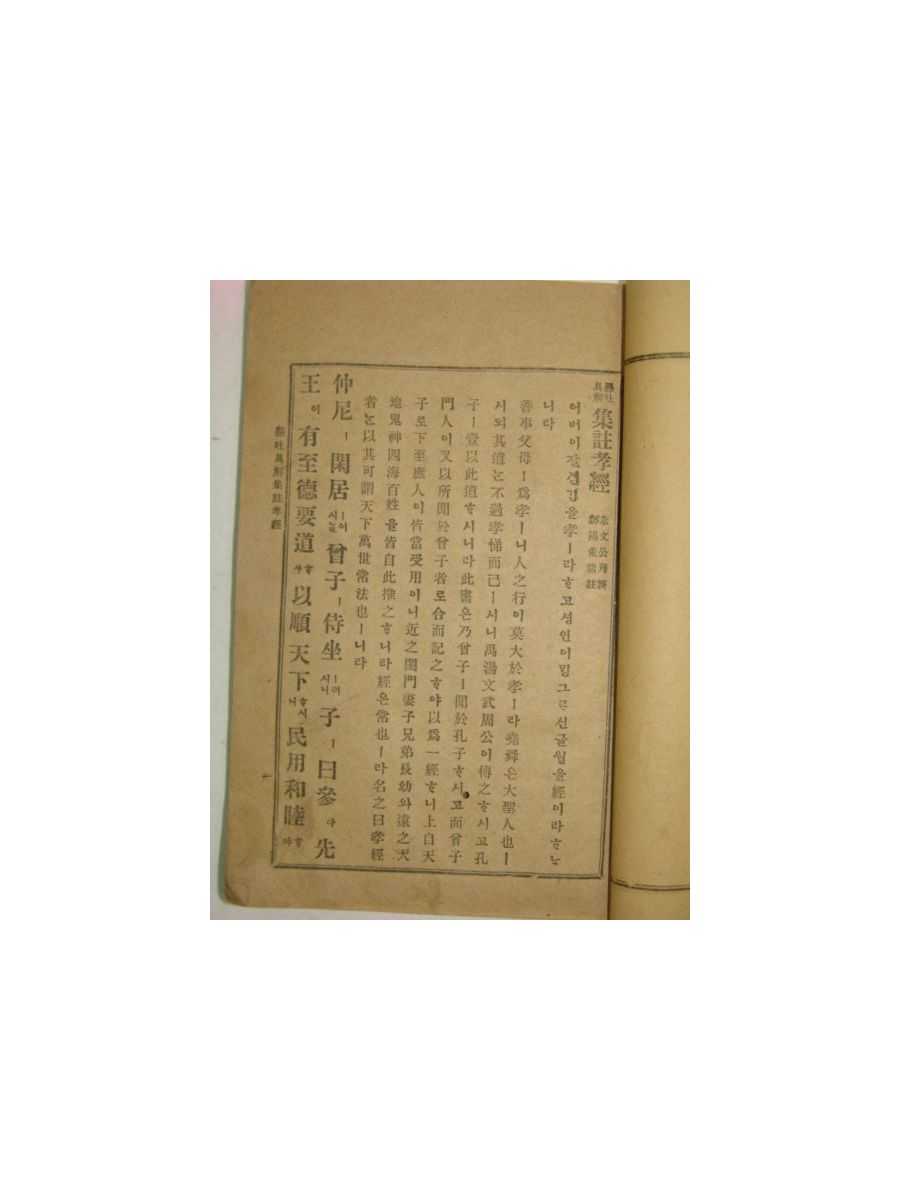 懸吐具解 集註孝經 朱文公刊誤 鄱陽董鼎註
어버이잘셤김을孝ㅣ라ᄒᆞ고셩인이밍그르신글월을經이라ᄒᆞᄂᆞ
니라
善事父母ㅣ爲孝ㅣ니人之行이莫大於孝ㅣ라堯舜은大聖人也ㅣ
시되其道ᄂᆞᆫ不過孝悌而已ㅣ시니禹湯文武周公이傳之ᄒᆞ시고孔
子ㅣ壹以此道ᄒᆞ시니라此書은乃曾子ㅣ聞於孔子ᄒᆞ시고而曾子
門人이又以所聞於曾子者로合而記之ᄒᆞ야以爲一經ᄒᆞ니上自天
子로下至庶人이皆當受用이니近之閨門妻子兄弟長幼와遠之天
地鬼神四海百姓을皆自此推之ᄒᆞ니라經은常也ㅣ라名之曰孝經
者ᄂᆞᆫ以其可謂天下萬世常法也ㅣ니라
仲尼ㅣ閑居ㅣ어시ᄂᆞᆯ曾子ㅣ侍坐ㅣ러시니子ㅣ曰參아先
王이有至德要道ᄒᆞ사以順天下ᄒᆞ시니民用和睦ᄒᆞ야
懸吐具解集註孝經